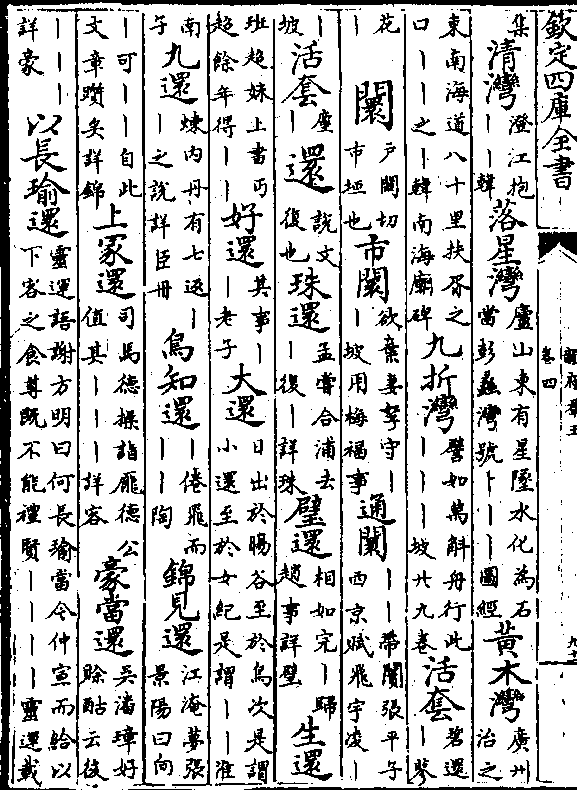 欽定四庫全書 韻府群玉 卷四
集 清灣 澄江抱｜｜韓 落星灣 廬山東有星墜水化為石當彭蠡灣號｜｜｜圖經 黃木灣 廣州治之
東南海道八十里扶胥之口｜｜之｜韓南海廟碑 九折灣 譬如萬斛舟行此｜｜｜坡廿九卷 活套 碧還｜琴
花｜｜ 闤 戶關切市垣也 市闤 欲棄妻孥守｜｜坡用梅福事 通闤 ｜｜帶闠張平子西京賦飛宇凌｜
｜坡 活套 塵｜ 還 說文復也 珠還 孟嘗合浦去｜復｜詳珠 璧還 相如完｜歸趙事詳璧 生還
班超妹上書丐超餘年得｜｜ 好還 其事｜｜老子 大還 日出於暘谷至於鳥次是謂小還至於女紀是謂｜｜淮
南子 九還 煉內丹有七返｜｜之說詳臣冊 鳥知還 ｜倦飛而｜｜陶 錦見還 江淹夢張景陽曰向
｜可｜｜自此文章躓矣詳錦 上冢還 司馬德操詣龐德公值其｜｜｜詳客 豪當還 吳潘璋好賒酤云後
｜｜｜詳豪 以長瑜還 靈運語謝方明曰何長瑜當今仲宣而給以下客之食尊既不能禮賢｜｜｜｜靈運載